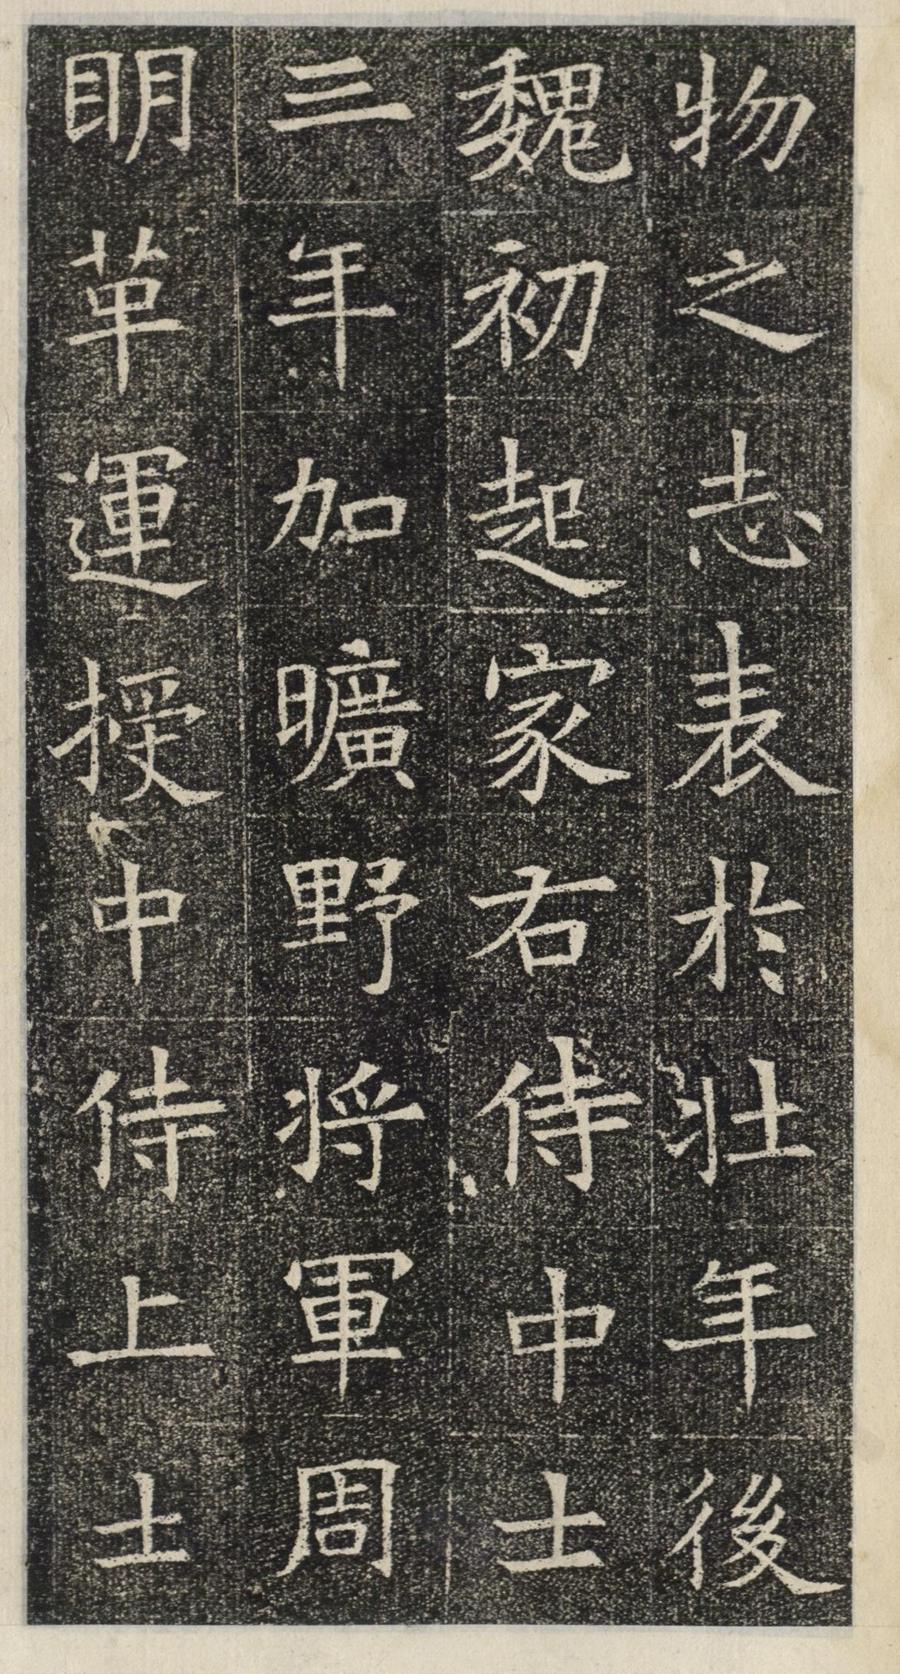 物之志表於壯年後
魏初起家右侍中士
三年加曠野將軍周
明革運授中侍上士